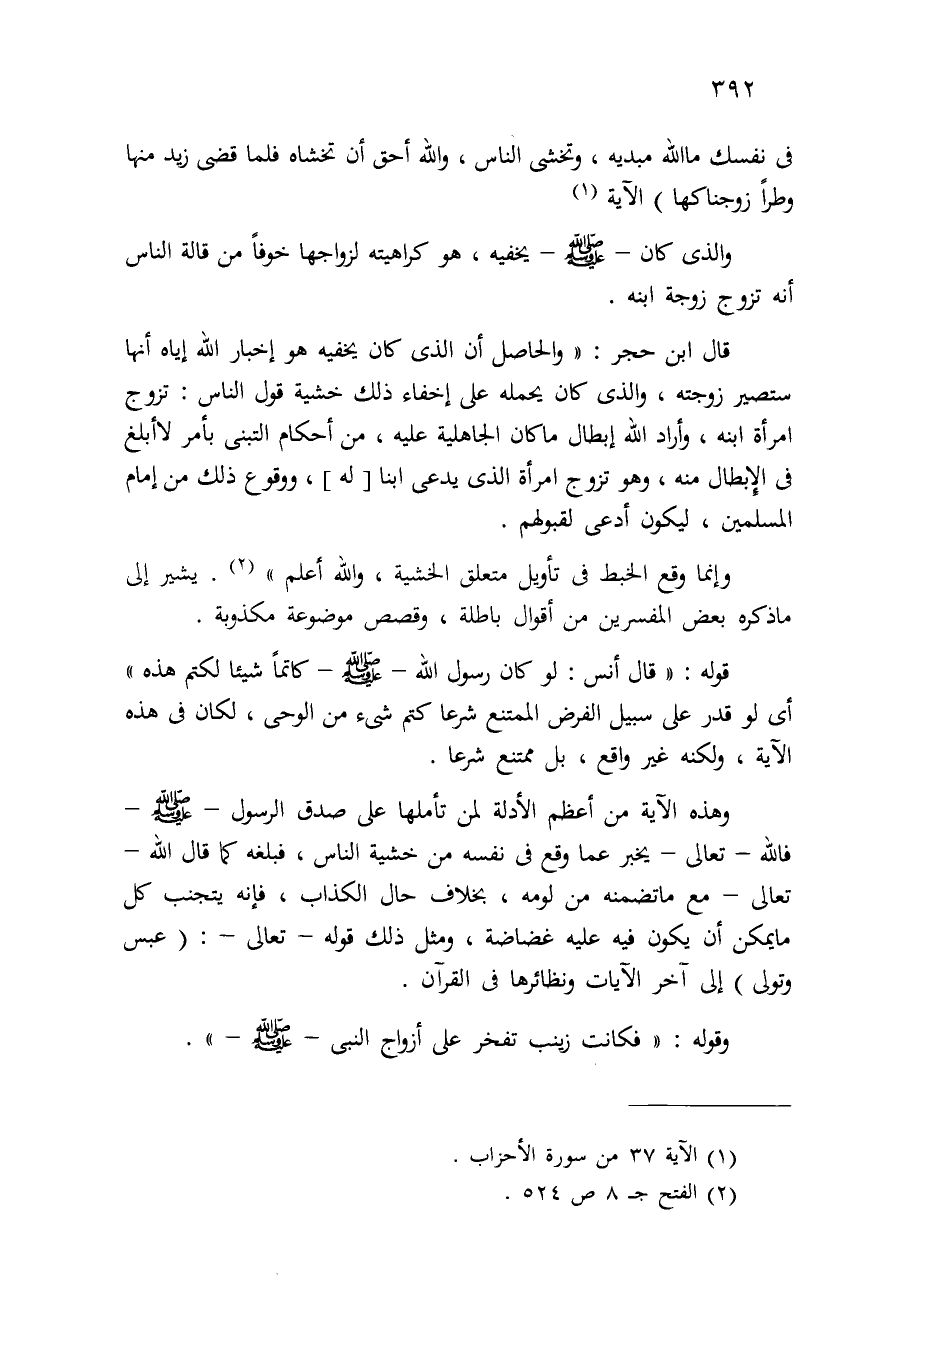 ٣٩٢
فى نفسك ماالله مبديه ، وتخشى الناس ، والله أحق أن تخشاه فلما قضى زيد منها
وطراً زوجناكها ) الآية (١)
والذى كان – ﷺ – يخفيه ، هو كراهيته لزواجها خوفاً من قالة الناس
أنه تزوج زوجة ابنه .
قال ابن حجر : « والحاصل أن الذى كان يخفيه هو إخبار الله إياه أنها
ستصير زوجته ، والذى كان يحمله على إخفاء ذلك خشية قول الناس : تزوج
امرأة ابنه ، وأراد الله إبطال ماكان الجاهلية عليه ، من أحكام التبنى بأمر لاأبلغ
فى الإبطال منه ، وهو تزوج امرأة الذى يدعى ابنا [ له ] ، ووقوع ذلك من إمام
المسلمين ، ليكون أدعى لقبولهم .
وإنما وقع الخبط فى تأويل متعلق الخشية ، والله أعلم » (٢) . يشير إلى
ماذكره بعض المفسرين من أقوال باطلة ، وقصص موضوعة مكذوبة .
قوله : « قال أنس : لو كان رسول الله – ﷺ – كاتماً شيئا لكتم هذه »
أى لو قدر على سبيل الفرض الممتنع شرعا كتم شىء من الوحى ، لكان فى هذه
الآية ، ولكنه غير واقع ، بل ممتنع شرعا .
وهذه الآية من أعظم الأدلة لمن تأملها على صدق الرسول – ﷺ –
فالله – تعالى – يخبر عما وقع فى نفسه من خشية الناس ، فبلغه كما قال الله –
تعالى – مع ماتضمنه من لومه ، بخلاف حال الكذاب ، فإنه يتجنب كل
مايمكن أن يكون فيه عليه غضاضة ، ومثل ذلك قوله – تعالى – : ( عبس
وتولى ) إلى آخر الآيات ونظائرها فى القرآن .
وقوله : « فكانت زينب تفخر على أزواج النبى – ﷺ – » .
(١) الآية ٣٧ من سورة الأحزاب .
(٢) الفتح جـ ٨ ص ٥٢٤ .